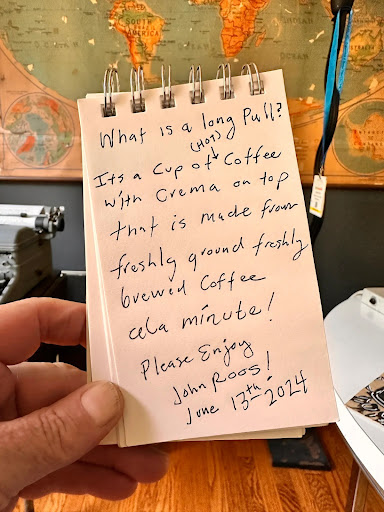 What is a long Pull?
Its a Cup of (HOT) Coffee
with Crema on top
that is made from
freshly ground freshly
brewed Coffee
ala minute!
Please Enjoy
John Roos!
June 13th 2024
SOUTH
AMERICA